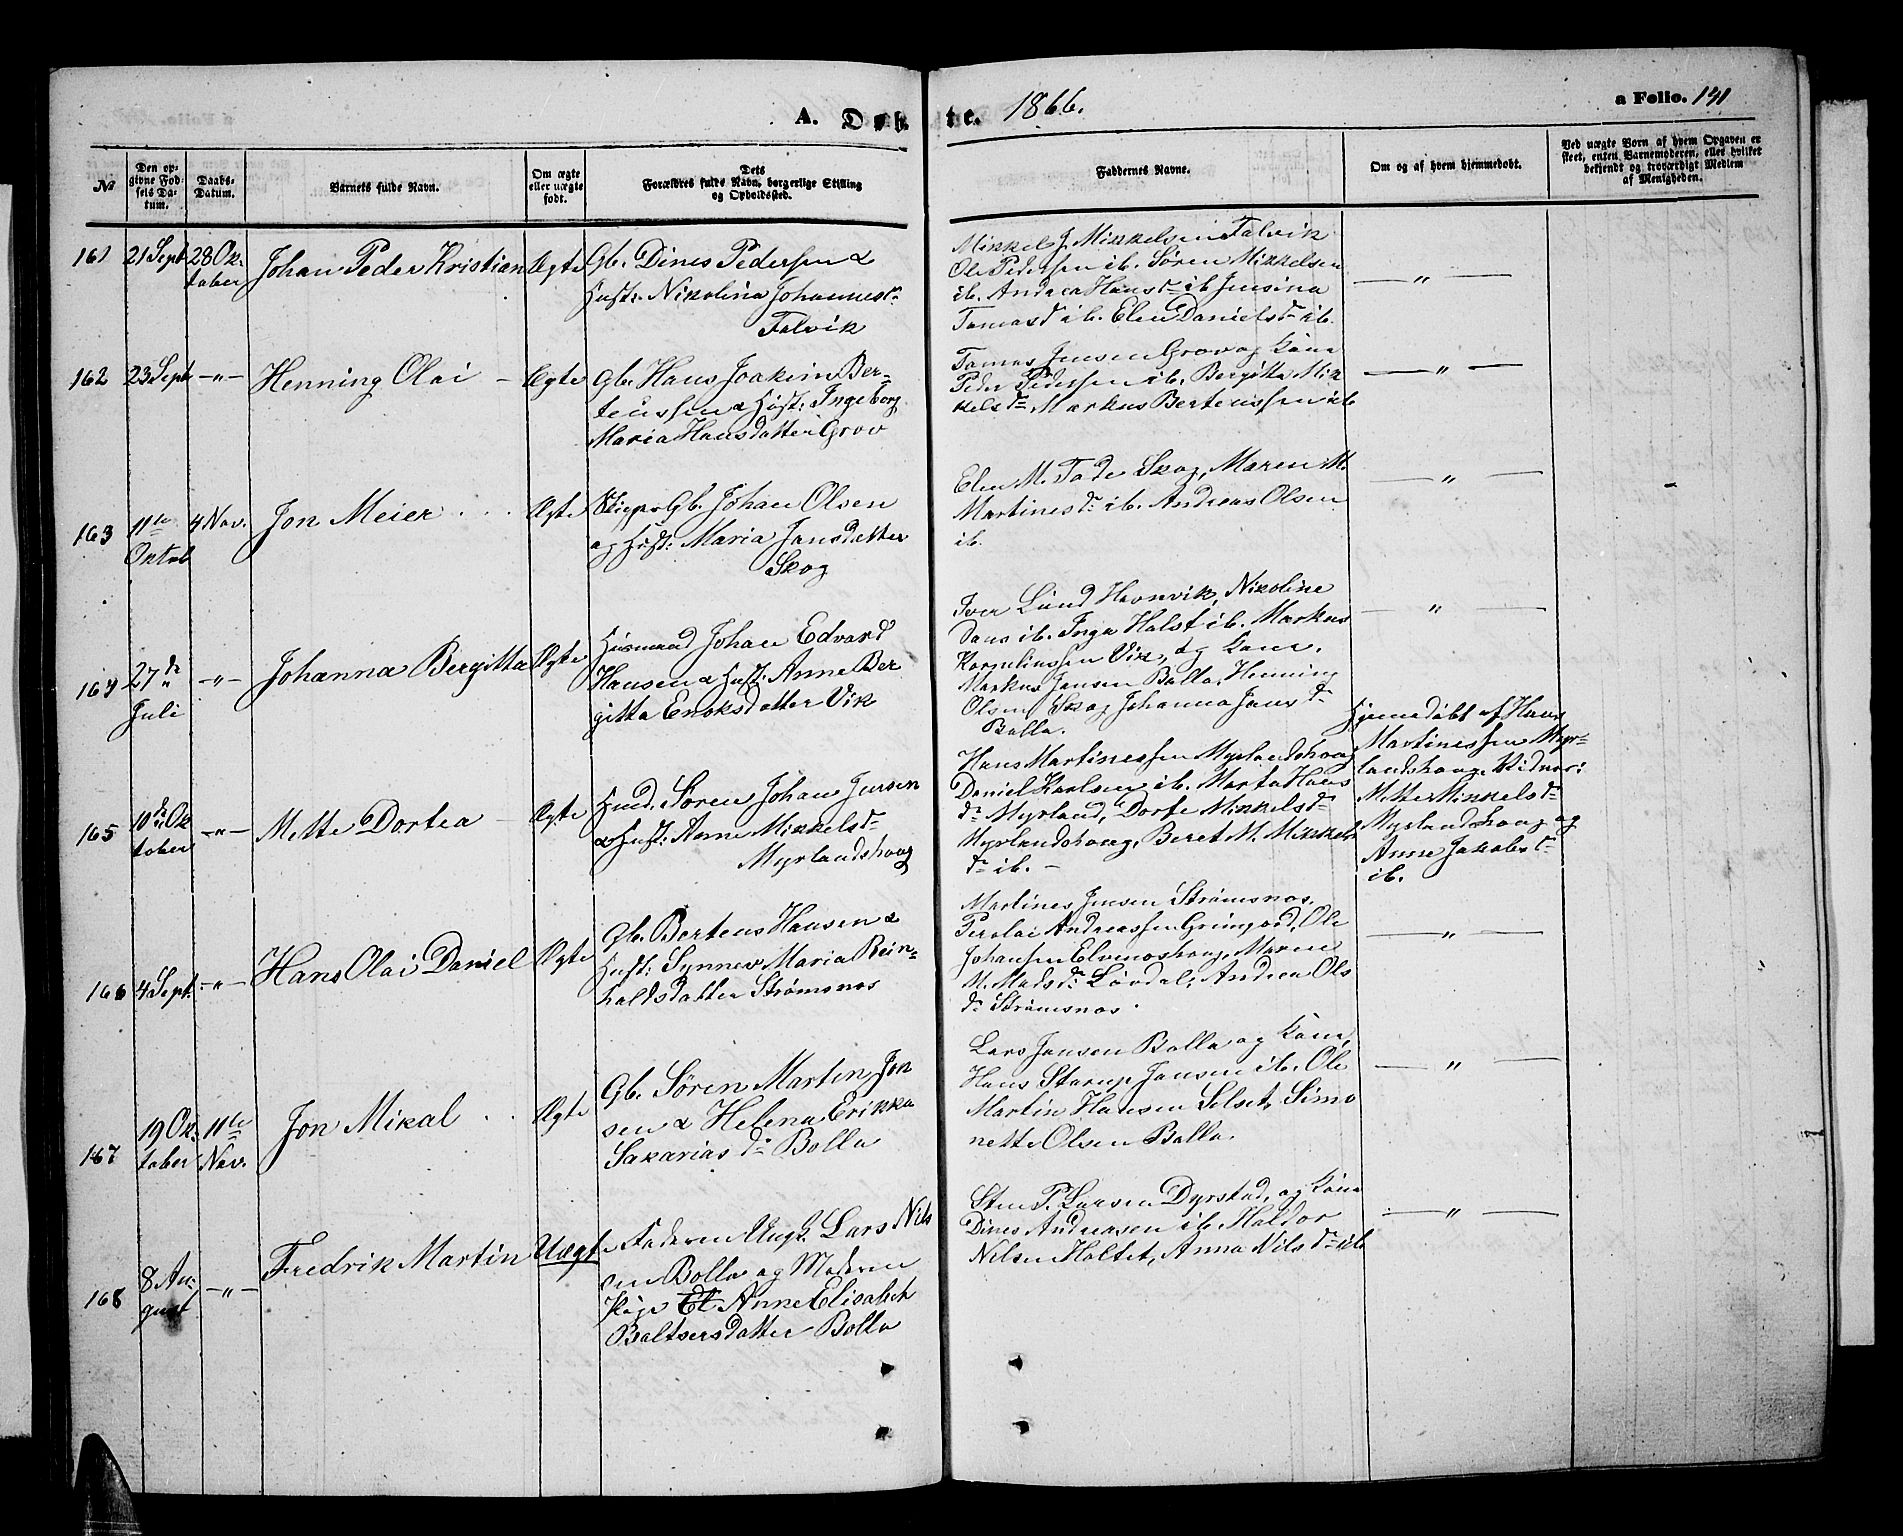 A. Døbte. 1866.
a Folio. 141
№
Den opgivne Fødsels Datum.
Daabs-Datum.
Barnets fulde Navn.
Om ægte eller uægte født.
Dets Forældres fulde Navn, borgerlige Stilling og Opholdssted.
Faddernes Navne.
Om og af hvem hjemmedøbt.
Ved uægte Børn af hvem Opgaven er skeet, enten Barnemoderen, eller hvilket bekjendt og troværdigt Medlem af Menigheden.
161
21 Sept
28 Ok-
tober
Johan Peder Kristian
Ægte
Gb. Dines Pedersen &
Hust: Nikolina Johannesd:
Falvik
Mikkel J Mikkelsen Falvik
Ole Pedersen ib. Sören Mikkelsen
ib. Andrea Hansd: ib Jensina
Tomasd ib. Elen Danielsd: ib.
— " —
162
23 Sept
— " —
Henning Olai —
Ægte
Gb. Hans Joakim Ber-
teussen & Hust: Ingeborg
Maria Hansdatter Grov
Tomas Jensen Grov og Kone
Peder Pedersen ib. Bergitta Mik
kelsd: Markus Berteussen ib
— " —
163
11te
Oktob
4 Nov.
Jon Meier
Ægte
Gb. Johan Olsen
og Hust: Maria Jansdatter
Skog
Elen M. Tode Skog, Maren M.
Martinesd: ib. Andreas Olsen
ib.
— " —
164
27de
Juli
— " —
Johanna Bergitta
Ægte
Husmand Johan Edvard
Hansen & Hust: Anne Ber
gitta Enoksdatter Vik
Iver Lund Havnvik, Nikoline
Dons ib. Inga Holst ib. Markus
Korneliussen Vik, og Kone.
Markus Jansen Bolla, Henning
Olsen Skog Johanna Jansd:
Bolla.
— " —
165
10de Ok
tober
— " —
Mette Dortea —
Ægte
Hmd. Sören Johan Jensen
& Hust: Anne Mikkelsd:
Myrlandshaug
Hans Martinessen Myrlandshaug
Daniel Karlsen ib. Marta Hans
d: Myrland, Dorte Mikkelsd:
Myrlandshaug, Beret M. Mikkels
d: ib. —
Hjemmedöbt af Hans
Martinessen Myr-
landshaug. Vidner:
Mette Mikkelsd:
Myrlandshaug og
Anne Jakobsd:
ib.
166
4 Sept.
— " —
Hans Olai Daniel
Ægte
Gb. Berteus Hansen &
Hust: Synnev Maria Rein-
holdsdatter Strömsnes
Martines Jensen Strömsnos.
Perolai Andreassen Grimjord, Ole
Johansen Elvenoshaug, Maren
M. Madsd: Lövdal, Andrea Ols
d: Strömsnos.
— " —
167
19 Ok-
tober
11te
Nov.
Jon Mikal
Ægte
Gb. Sören Martin Jon
sen & Helena Erikka
Sakariasd: Bolla
Lars Jansen Bolla og Kone,
Hans Starup Jansen ib. Ole
Martin Hansen Selset, Simo
nette Olsen Bolla.
— " —
168
8 Au-
gust
— " —
Fredrik Martin
Uægte
Faderen Ungk. Lars Nils
sen Bolla og Moderen
Pige Anne Elisabeth
Baltsersdatter Bolla
Sten P. Larsen Dyrstad, og Kone
Dines Andreasen ib. Haldor
Nilsen Holtet, Anna Nilsd: ib
— " —